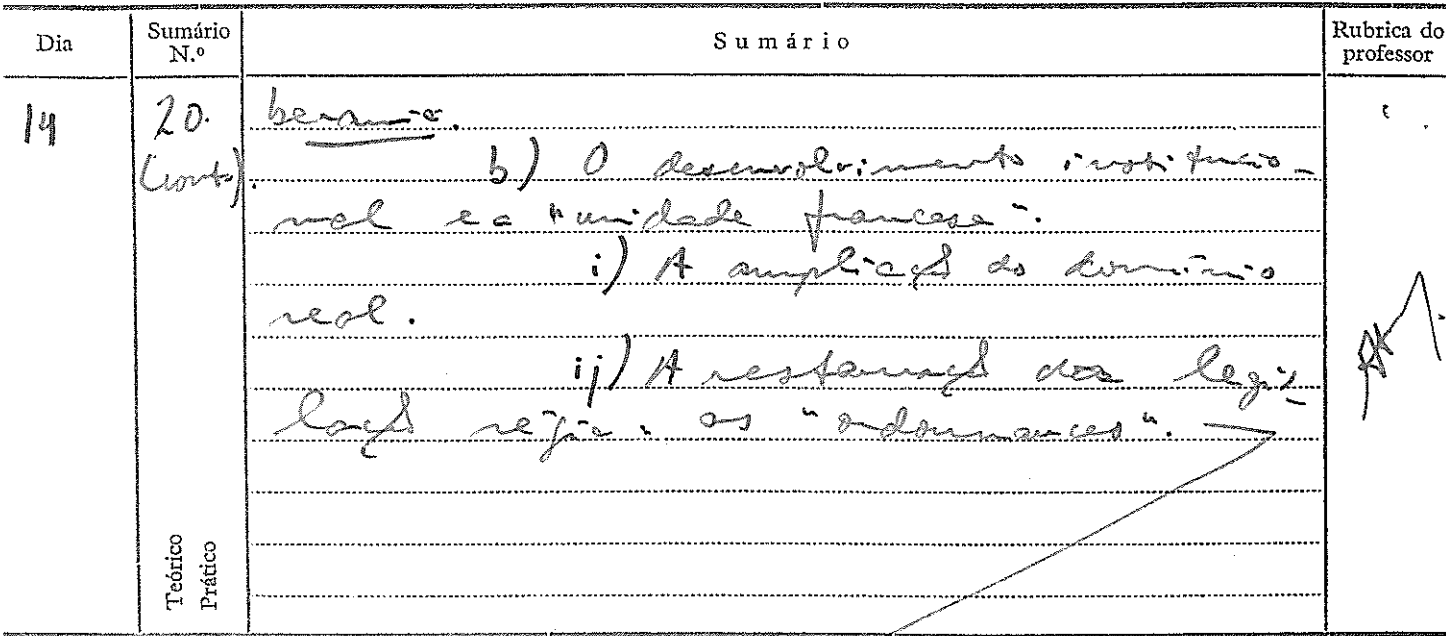 Dia Sumário N.º Sumário Rubrica do professor
14 20. berania.
(cont.). b) O desenvolvimento institucio-
nal e a "unidade francesa".
i) A ampliação do domínio
real.
ii) A restauração da legis-
lação régia: as "ordonnances".
Teórico
Prático